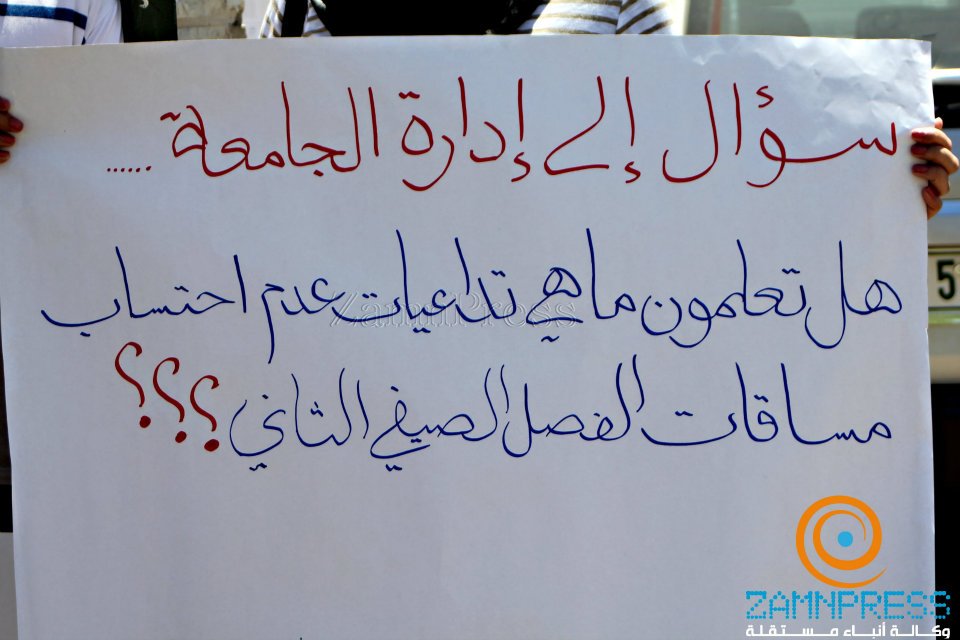 سؤال إلى إدارة الجامعة ......
هل تعلمون ما هي تداعيات عدم احتساب
مساقات الفصل الصيفي الثاني ؟؟؟
ZamnPress
5
ZAMNPRESS
وكالة أنباء مستقلة